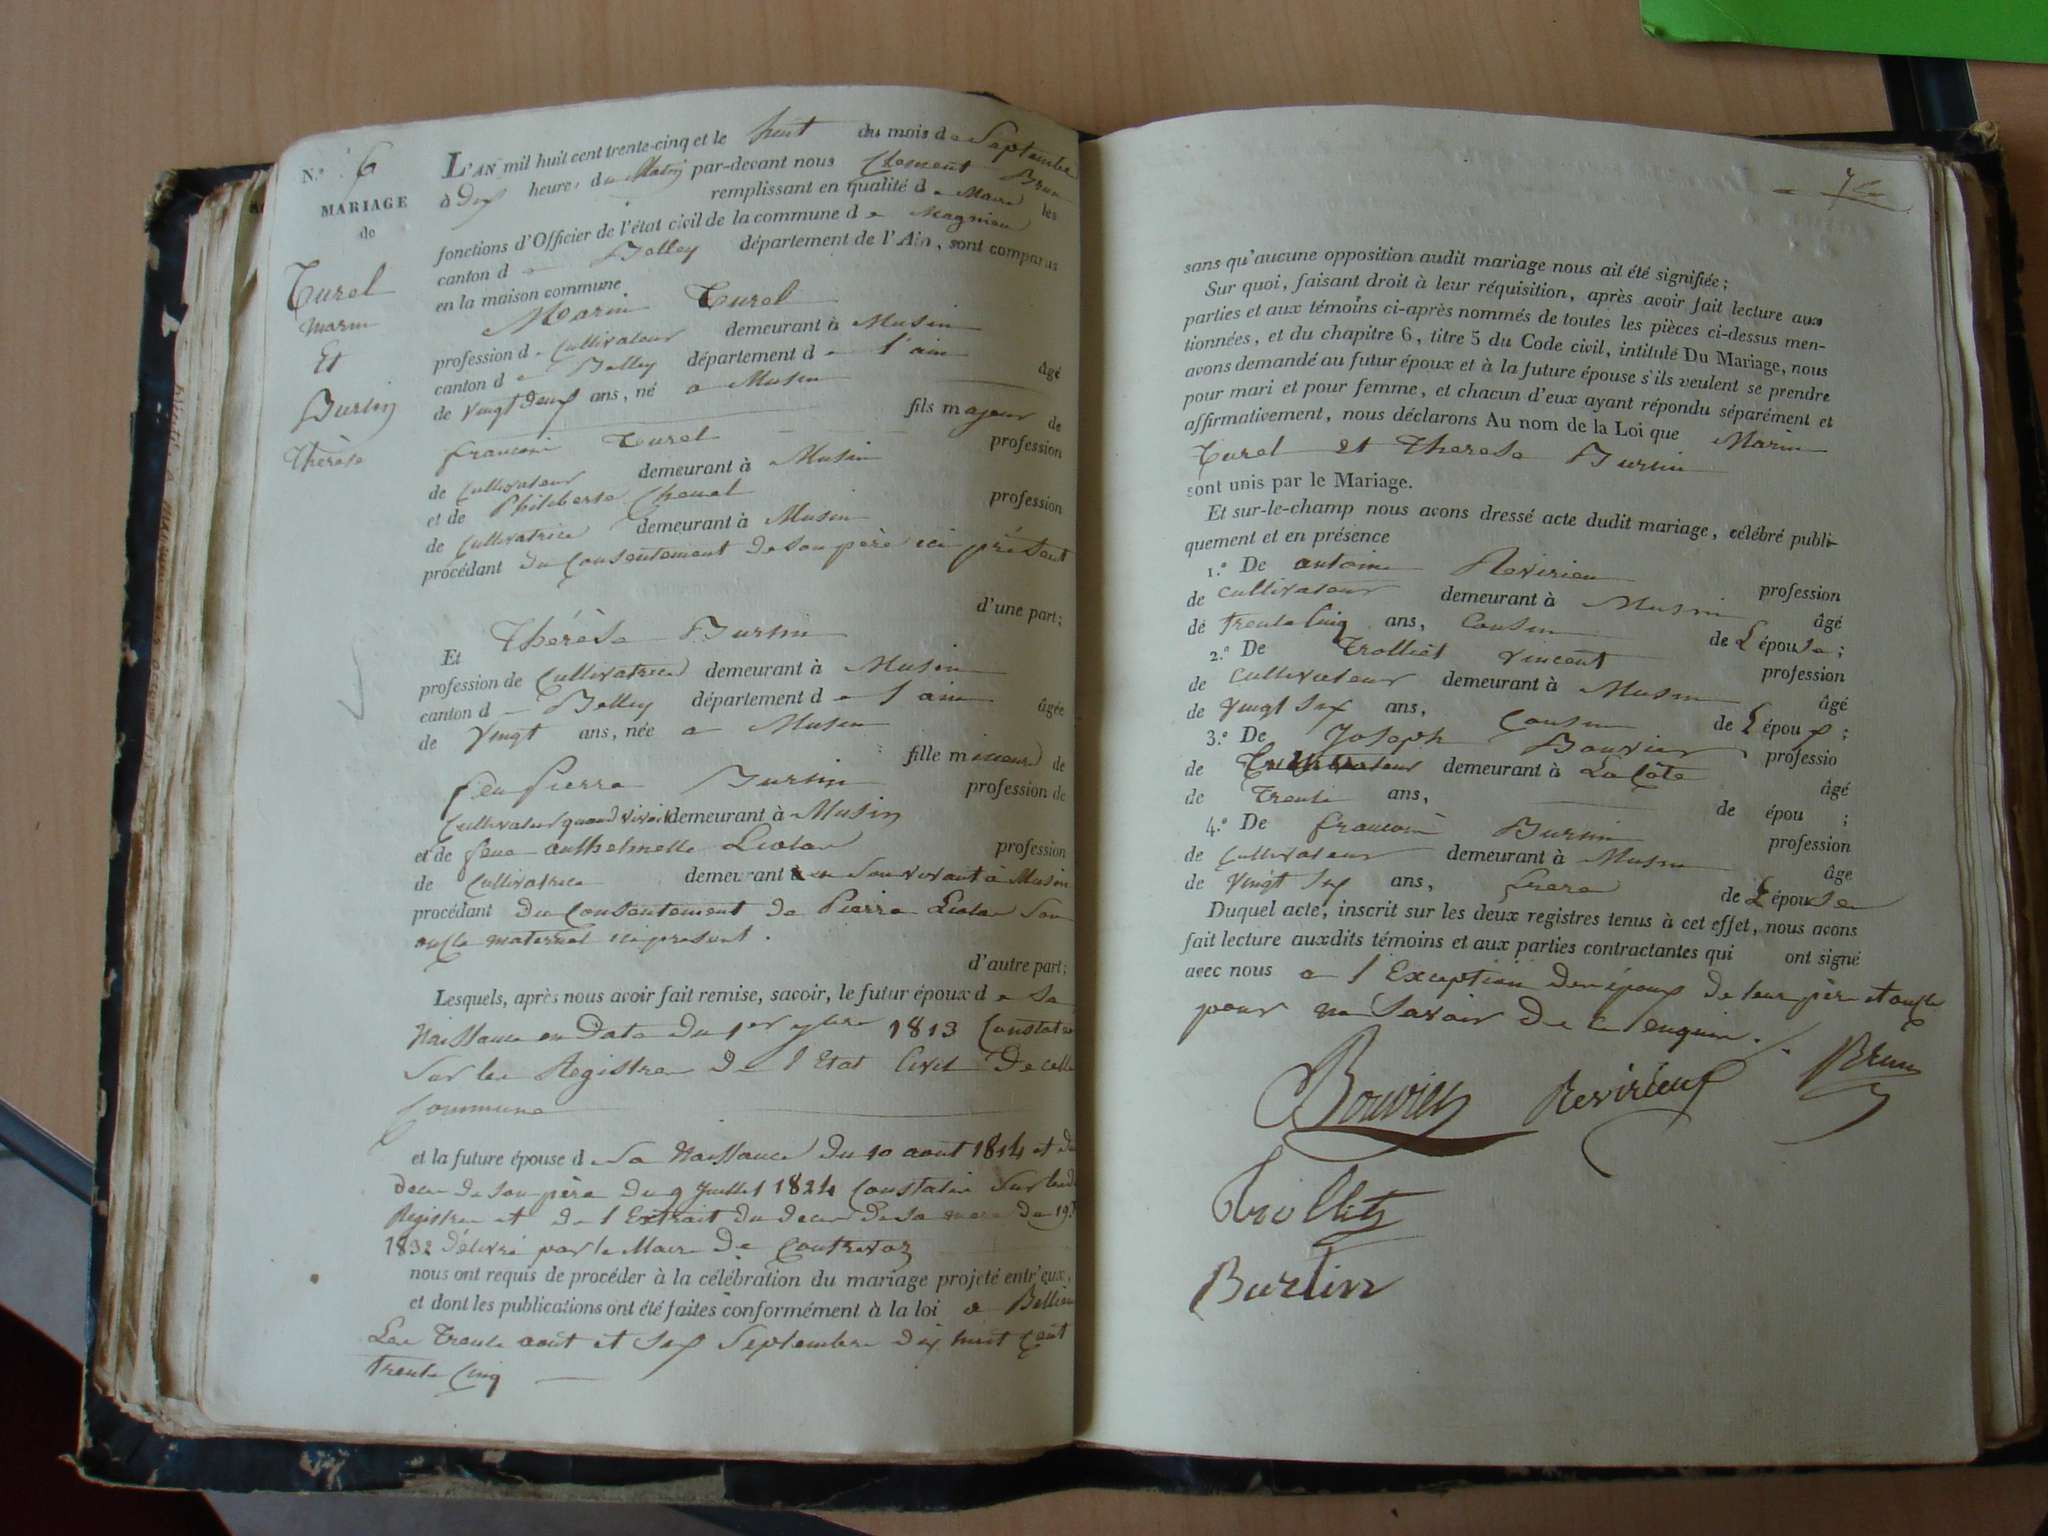 N.º 6
MARIAGE
de
Turel
Marin
Et
Burtin
Thérèse
L'AN mil huit cent trente-cinq et le huit du mois de Septembre
à Dix heures du Matin par-devant nous Clement Brun
remplissant en qualité de Maire les
fonctions d'Officier de l'état civil de la commune de Magnieu
canton de Belley département de l'Ain, sont comparus
en la maison commune
Marin Turel
profession de Cultivateur demeurant à Musin
canton de Belley département de l'ain âgé
de vingt deux ans, né a Musin
fils majeur de
francois Turel profession
de Cultivateur demeurant à Musin
et de Philiberte Chenel profession
de Cultivatrice demeurant à Musin
procédant du Consentement de son père ici présent
d'une part;
Et Thérèse Burtin
profession de Cultivatrice demeurant à Musin
canton de Belley département de l'ain âgée
de Vingt ans, née a Musin
fille mineure de
feu pierre Burtin profession de
Cultivateur quand vivait demeurant à Musin
et de feue anthelmette Liolar profession
de Cultivatrice demeurant en son vivant à Musin
procédant du Consentement de Pierre Liolar son
oncle maternel ici présent.
d'autre part;
Lesquels, après nous avoir fait remise, savoir, le futur époux de sa
Naissance en Date du 1er 1813 Constatée
Sur les Registres De l'Etat Civil De cette
Commune
et la future épouse de sa Naissance du 10 aout 1814 et du
deces de son père du 9 Juillet 1824 Constatés Sur lesd
Registres et de l'Extrait du deces de sa mere du 19
1832 délivré par le Maire de Contrevoz
nous ont requis de procéder à la célébration du mariage projeté entr'eux,
et dont les publications ont été faites conformément à la loi a
Les Trente aout et Six Septembre dix huit Cent
trente Cinq
sans qu'aucune opposition audit mariage nous ait été signifiée;
Sur quoi, faisant droit à leur réquisition, après avoir fait lecture aux
parties et aux témoins ci-après nommés de toutes les pièces ci-dessus men-
tionnées, et du chapitre 6, titre 5 du Code civil, intitulé Du Mariage, nous
avons demandé au futur époux et à la future épouse s'ils veulent se prendre
pour mari et pour femme, et chacun d'eux ayant répondu séparément et
affirmativement, nous déclarons Au nom de la Loi que Marin
Turel et Therese Burtin
sont unis par le Mariage.
Et sur-le-champ nous avons dressé acte dudit mariage, célébré publi-
quement et en présence
1.º De antoine Revirieu profession
de Cultivateur demeurant à Musin âgé
de trente Cinq ans, Cousin de L'épouse;
2.º De Trolliet vincent profession
de Cultivateur demeurant à Musin âgé
de vingt Six ans, Cousin de L'époux;
3.º De Joseph Bouvier professio
de Cultivateur demeurant à La Côte âgé
de Trente ans, de épou ;
4.º De francois Burtin profession
de Cultivateur demeurant à Musin âge
de vingt Six ans, frere de L'épouse
Duquel acte, inscrit sur les deux registres tenus à cet effet, nous avons
fait lecture auxdits témoins et aux parties contractantes qui ont signé
avec nous a l'Exception des époux de leur père et oncle
pour ne Savoir De ce enquis.
Bouvier Revirieux Brun
Trolliet
Burtin